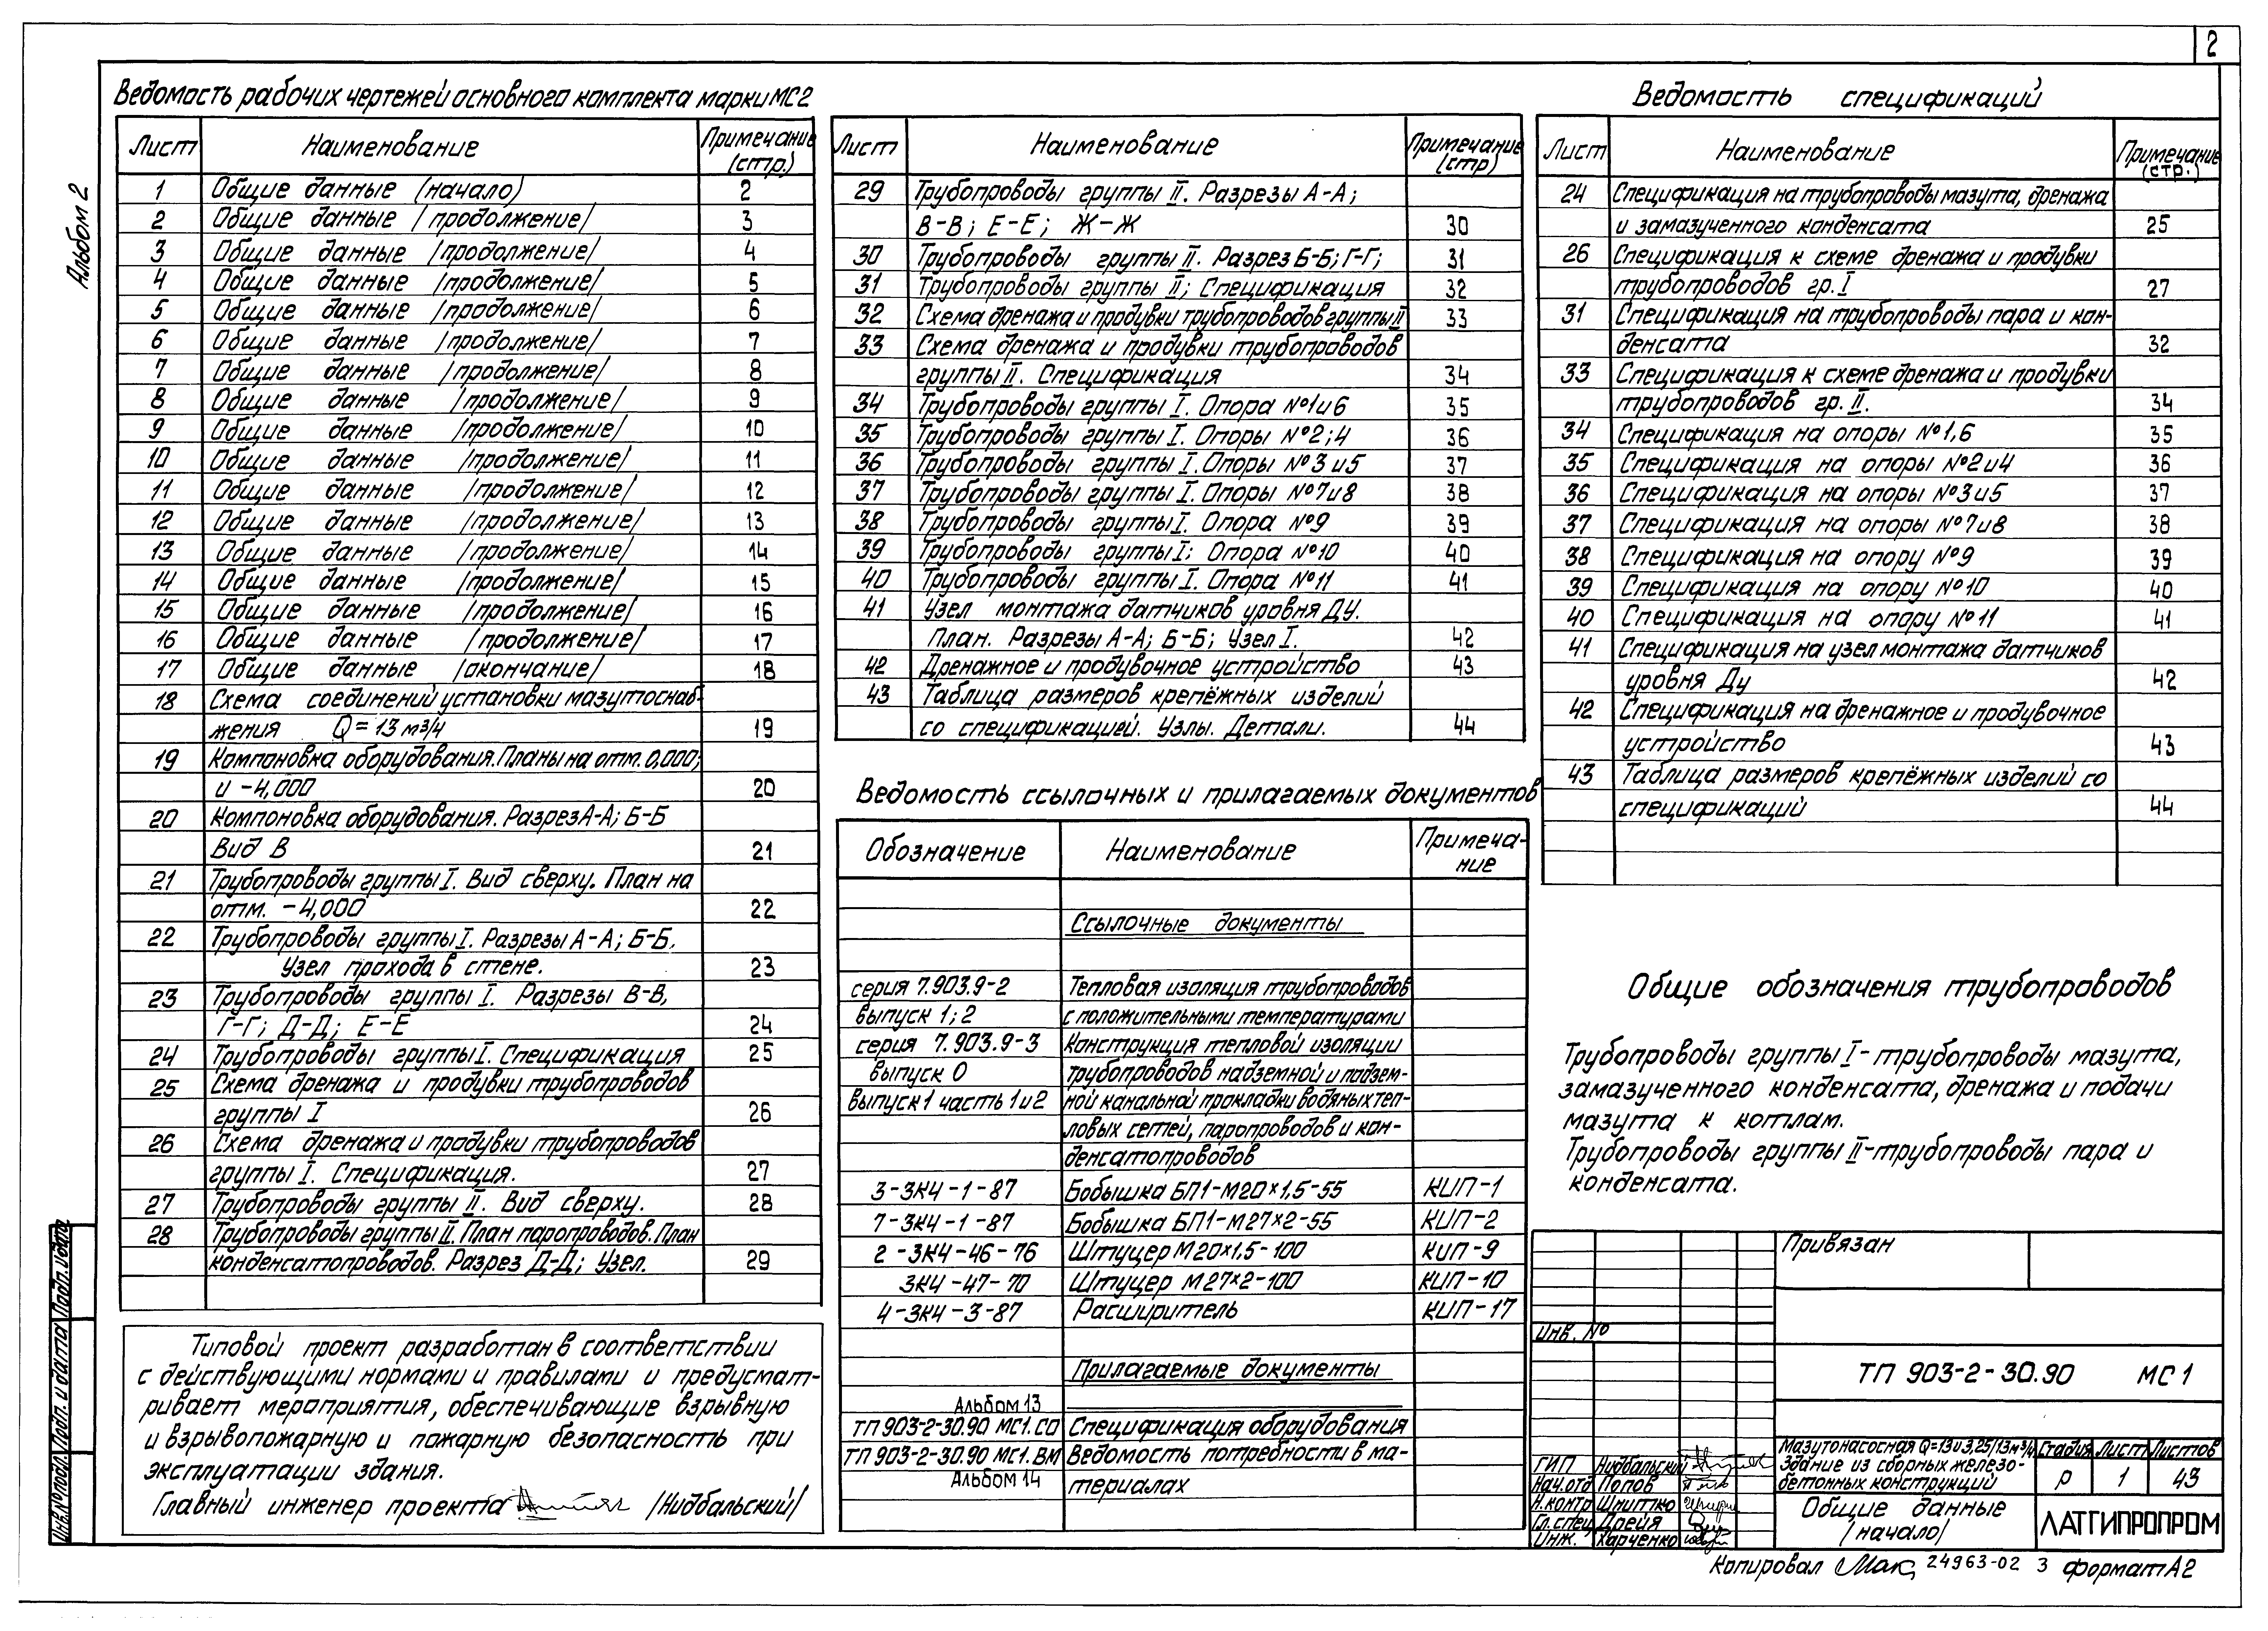 2
Альбом 2
Ведомость рабочих чертежей основного комплекта марки МС2
Лист Наименование Примечание (стр.)
1 Общие данные (начало) 2
2 Общие данные /продолжение/ 3
3 Общие данные /продолжение/ 4
4 Общие данные /продолжение/ 5
5 Общие данные /продолжение/ 6
6 Общие данные /продолжение/ 7
7 Общие данные /продолжение/ 8
8 Общие данные /продолжение/ 9
9 Общие данные /продолжение/ 10
10 Общие данные /продолжение/ 11
11 Общие данные /продолжение/ 12
12 Общие данные /продолжение/ 13
13 Общие данные /продолжение/ 14
14 Общие данные /продолжение/ 15
15 Общие данные /продолжение/ 16
16 Общие данные /продолжение/ 17
17 Общие данные /окончание/ 18
18 Схема соединений установки мазутоснаб-
жения Q=13 м3/ч 19
19 Компоновка оборудования. Планы на отм. 0,000;
и -4,000 20
20 Компоновка оборудования. Разрез А-А; Б-Б
Вид В 21
21 Трубопроводы группы I. Вид сверху. План на
отм. -4,000 22
22 Трубопроводы группы I. Разрезы А-А; Б-Б.
Узел прохода в стене. 23
23 Трубопроводы группы I. Разрезы В-В,
Г-Г; Д-Д; Е-Е 24
24 Трубопроводы группы I. Спецификация 25
25 Схема дренажа и продувки трубопроводов
группы I 26
26 Схема дренажа и продувки трубопроводов
группы I. Спецификация. 27
27 Трубопроводы группы II. Вид сверху. 28
28 Трубопроводы группы II. План паропроводов. План
конденсатопроводов. Разрез Д-Д; Узел. 29
Типовой проект разработан в соответствии
с действующими нормами и правилами и предусмат-
ривает мероприятия, обеспечивающие взрывную
и взрывопожарную и пожарную безопасность при
эксплуатации здания.
Главный инженер проекта /Нидбальский/
Лист Наименование Примечание (стр)
29 Трубопроводы группы II. Разрезы А-А;
В-В; Е-Е; Ж-Ж 30
30 Трубопроводы группы II. Разрез Б-Б; Г-Г; 31
31 Трубопроводы группы II; Спецификация 32
32 Схема дренажа и продувки трубопроводов группы II 33
33 Схема дренажа и продувки трубопроводов
группы II. Спецификация 34
34 Трубопроводы группы I. Опора №1и6 35
35 Трубопроводы группы I. Опоры №2;4 36
36 Трубопроводы группы I. Опоры №3 и5 37
37 Трубопроводы группы I. Опоры №7и8 38
38 Трубопроводы группы I. Опора №9 39
39 Трубопроводы группы I: Опора №10 40
40 Трубопроводы группы I. Опора №11 41
41 Узел монтажа датчиков уровня ДУ.
План. Разрезы А-А; Б-Б; Узел I. 42
42 Дренажное и продувочное устройство 43
43 Таблица размеров крепёжных изделий
со спецификацией. Узлы. Детали. 44
Ведомость ссылочных и прилагаемых документов
Обозначение Наименование Примеча-
ние
Ссылочные документы
серия 7.903.9-2 Тепловая изоляция трубопроводов
выпуск 1; 2 с положительными температурами
серия 7.903.9-3 Конструкция тепловой изоляции
выпуск 0 трубопроводов надземной и подзем-
выпуск 1 часть 1 и 2 ной канальной прокладки водяных теп-
ловых сетей, паропроводов и кон-
денсатопроводов
3-ЗК4-1-87 Бобышка БП1-М20×1,5-55 КИП-1
7-ЗК4-1-87 Бобышка БП1-М27×2-55 КИП-2
2-ЗК4-46-76 Штуцер М20×1,5-100 КИП-9
ЗК4-47-70 Штуцер М27×2-100 КИП-10
4-ЗК4-3-87 Расширитель КИП-17
Прилагаемые документы
Альбом 13
ТП 903-2-30.90 МС1.СО Спецификация оборудования
ТП 903-2-30.90 МС1.ВМ Ведомость потребности в ма-
Альбом 14 териалах
Ведомость спецификаций
Лист Наименование Примечание (стр.)
24 Спецификация на трубопроводы мазута, дренажа
и замазученного конденсата 25
26 Спецификация к схеме дренажа и продувки
трубопроводов гр. I 27
31 Спецификация на трубопроводы пара и кон-
денсата 32
33 Спецификация к схеме дренажа и продувки
трубопроводов гр. II. 34
34 Спецификация на опоры №1,6 35
35 Спецификация на опоры №2и4 36
36 Спецификация на опоры №3и5 37
37 Спецификация на опоры №7и8 38
38 Спецификация на опору №9 39
39 Спецификация на опору №10 40
40 Спецификация на опору №11 41
41 Спецификация на узел монтажа датчиков
уровня Ду 42
42 Спецификация на дренажное и продувочное
устройство 43
43 Таблица размеров крепёжных изделий со
спецификаций 44
Общие обозначения трубопроводов
Трубопроводы группы I-трубопроводы мазута,
замазученного конденсата, дренажа и подачи
мазута к котлам.
Трубопроводы группы II-трубопроводы пара и
конденсата.
Привязан
Инв. №
ТП 903-2-30.90 МС 1
Мазутонасосная Q=13и3,25/13м3/ч
Здание из сборных железо-
бетонных конструкций
Стадия Лист Листов
Р 1 43
ГИП Нидбальский
Нач.отд Попов
Н.контр Шнитко
Гл.спец Дрейя
Инж. Харченко
Общие данные
/начало/
ЛАТГИПРОПРОМ
Инв.№ подл. Подп. и дата
Копировал 24963-02 3 формат А2